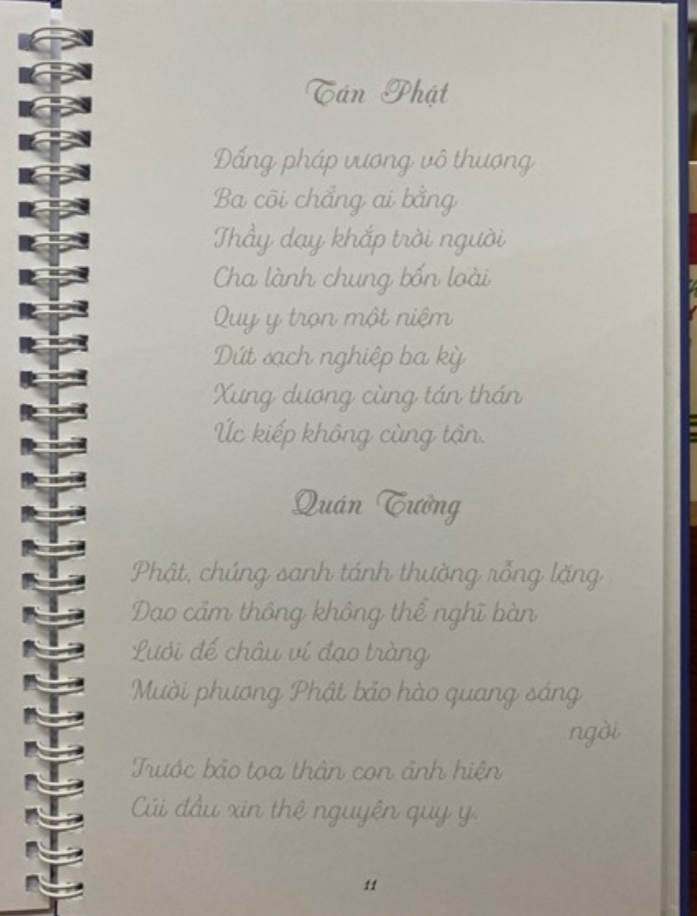 Tán Phật
Đấng pháp vương vô thượng
Ba cõi chẳng ai bằng
Thầy dạy khắp trời người
Cha lành chung bốn loài
Quy y trọn một niệm
Dứt sạch nghiệp ba kỳ
Xưng dương cùng tán thán
Ức kiếp không cùng tận.
Quán Tưởng
Phật, chúng sanh tánh thường rỗng lặng
Đạo cảm thông không thể nghĩ bàn
Lưới đế châu ví đạo tràng
Mười phương Phật bảo hào quang sáng
ngời
Trước bảo tọa thân con ảnh hiện
Cúi đầu xin thệ nguyện quy y.
11